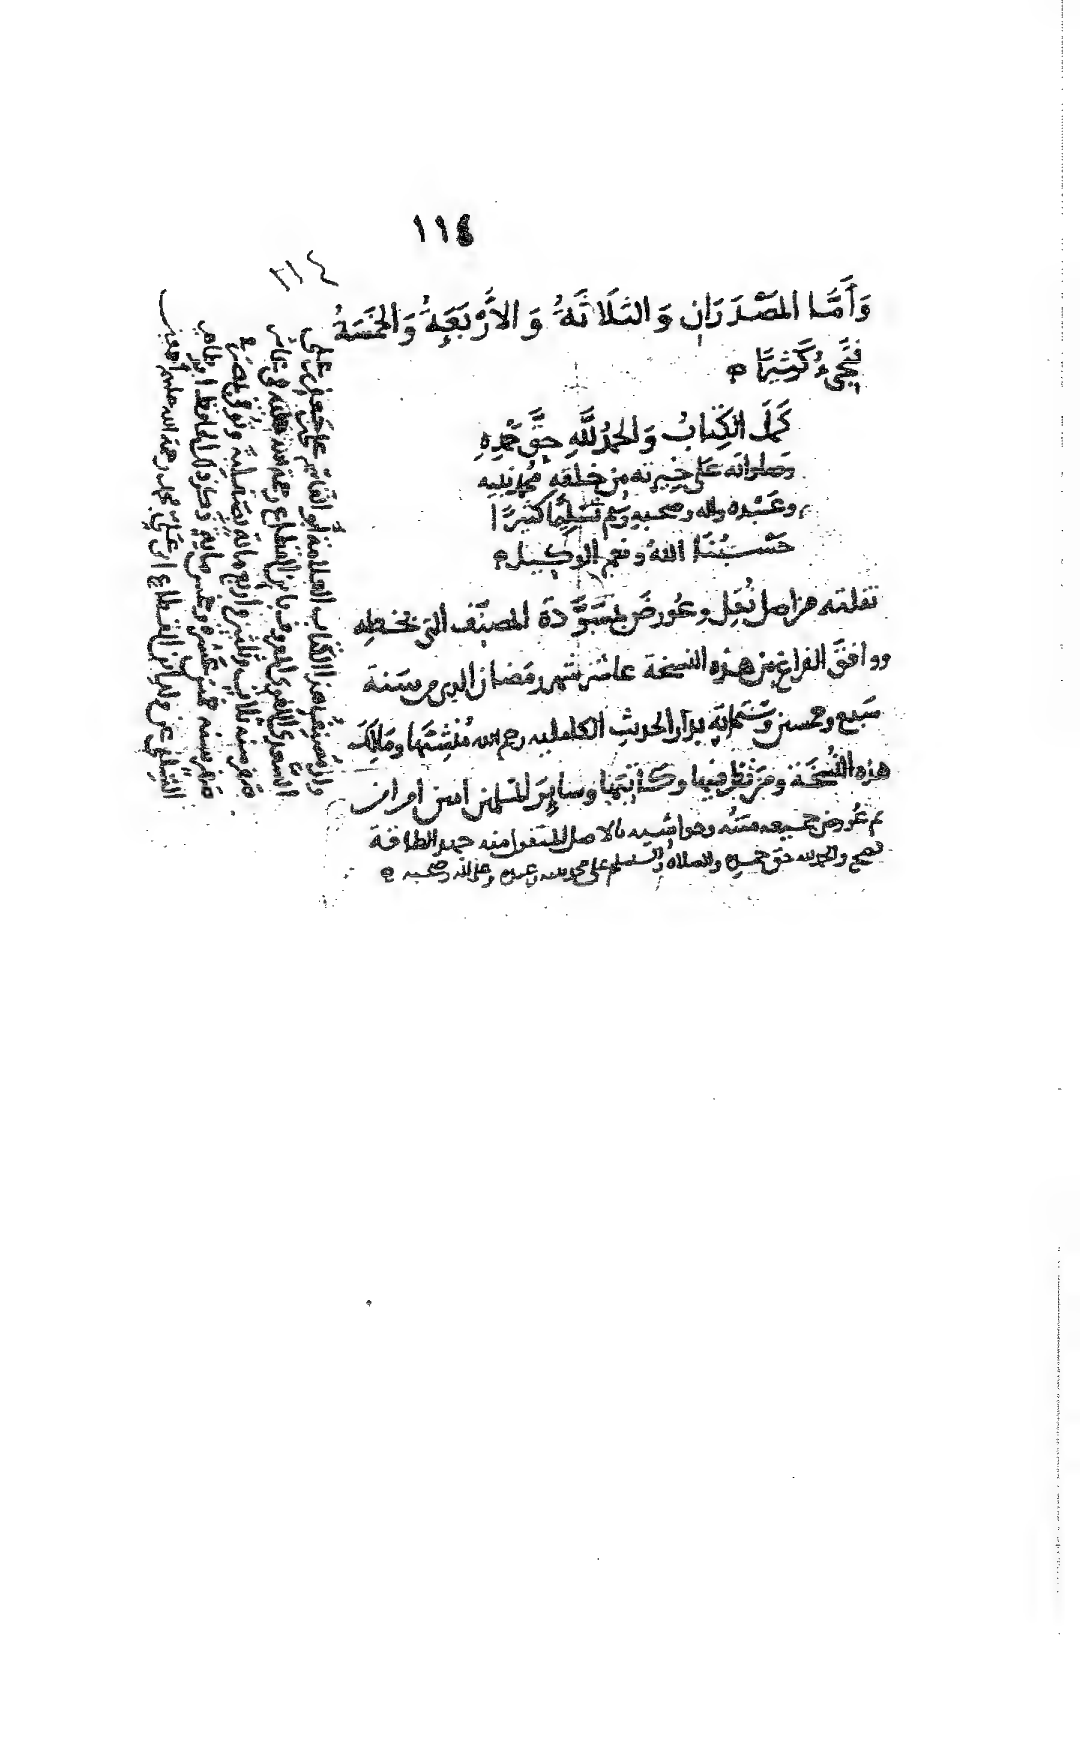 ١١٤
١١٤
وَأَمَّا المَصْدَرَانِ وَالثَّلَاثَةُ وَالأَرْبَعَةُ وَالخَمْسَةُ
فَيَجِيءُ كَثِيرًا
كَمَلَ الكِتَابُ وَالحَمْدُ لِلَّهِ حَقَّ حَمْدِهِ
وصلواته عَلى خِيرته مِن خلقه محمد نبيه
وعَبْده واله وصحبه وسلم تَسْلِيمًا كَثيرًا
حَسْبُنَا اللهُ ونعم الوكيل
نقلته من اصل نُقِلَ وعُورضَ بمُسَوَّدَة المصنِّف التي بخطه
ووافقَ الفراغ من هذه النسخة عاشر شهر رمضان سَنة
سَبع وخمسين وستمائه بدار الحديث الكامليه رحم الله مُنْشِئَها ومَالِكَ
هذه النُّسخَة ومن نظر فيها وكَاتِبَها وسايرَ المسلمين امين امين
ثم عُورض جميعه متنُه وحواشيه بالاصل المنقول منه جهد الطاقة
فصح والحمد لله حق حمده والصلاة والسلام على محمد نبيه وعبده وعلى اله وصحبه
مُصَنِّفُ هذا الكتاب العلامة أبو القاسم علي بن جعفر بن علي
السَّعدي اللغوي المعروف بابن القطاع رحمه الله
صفر سنه ثلاث وثلثين واربع مائة بصقلية وتوفي بمصر في
صفر سنه خمس عشره وخمس مايه وذكر الحافظ ابو طاهر
السِّلَفي